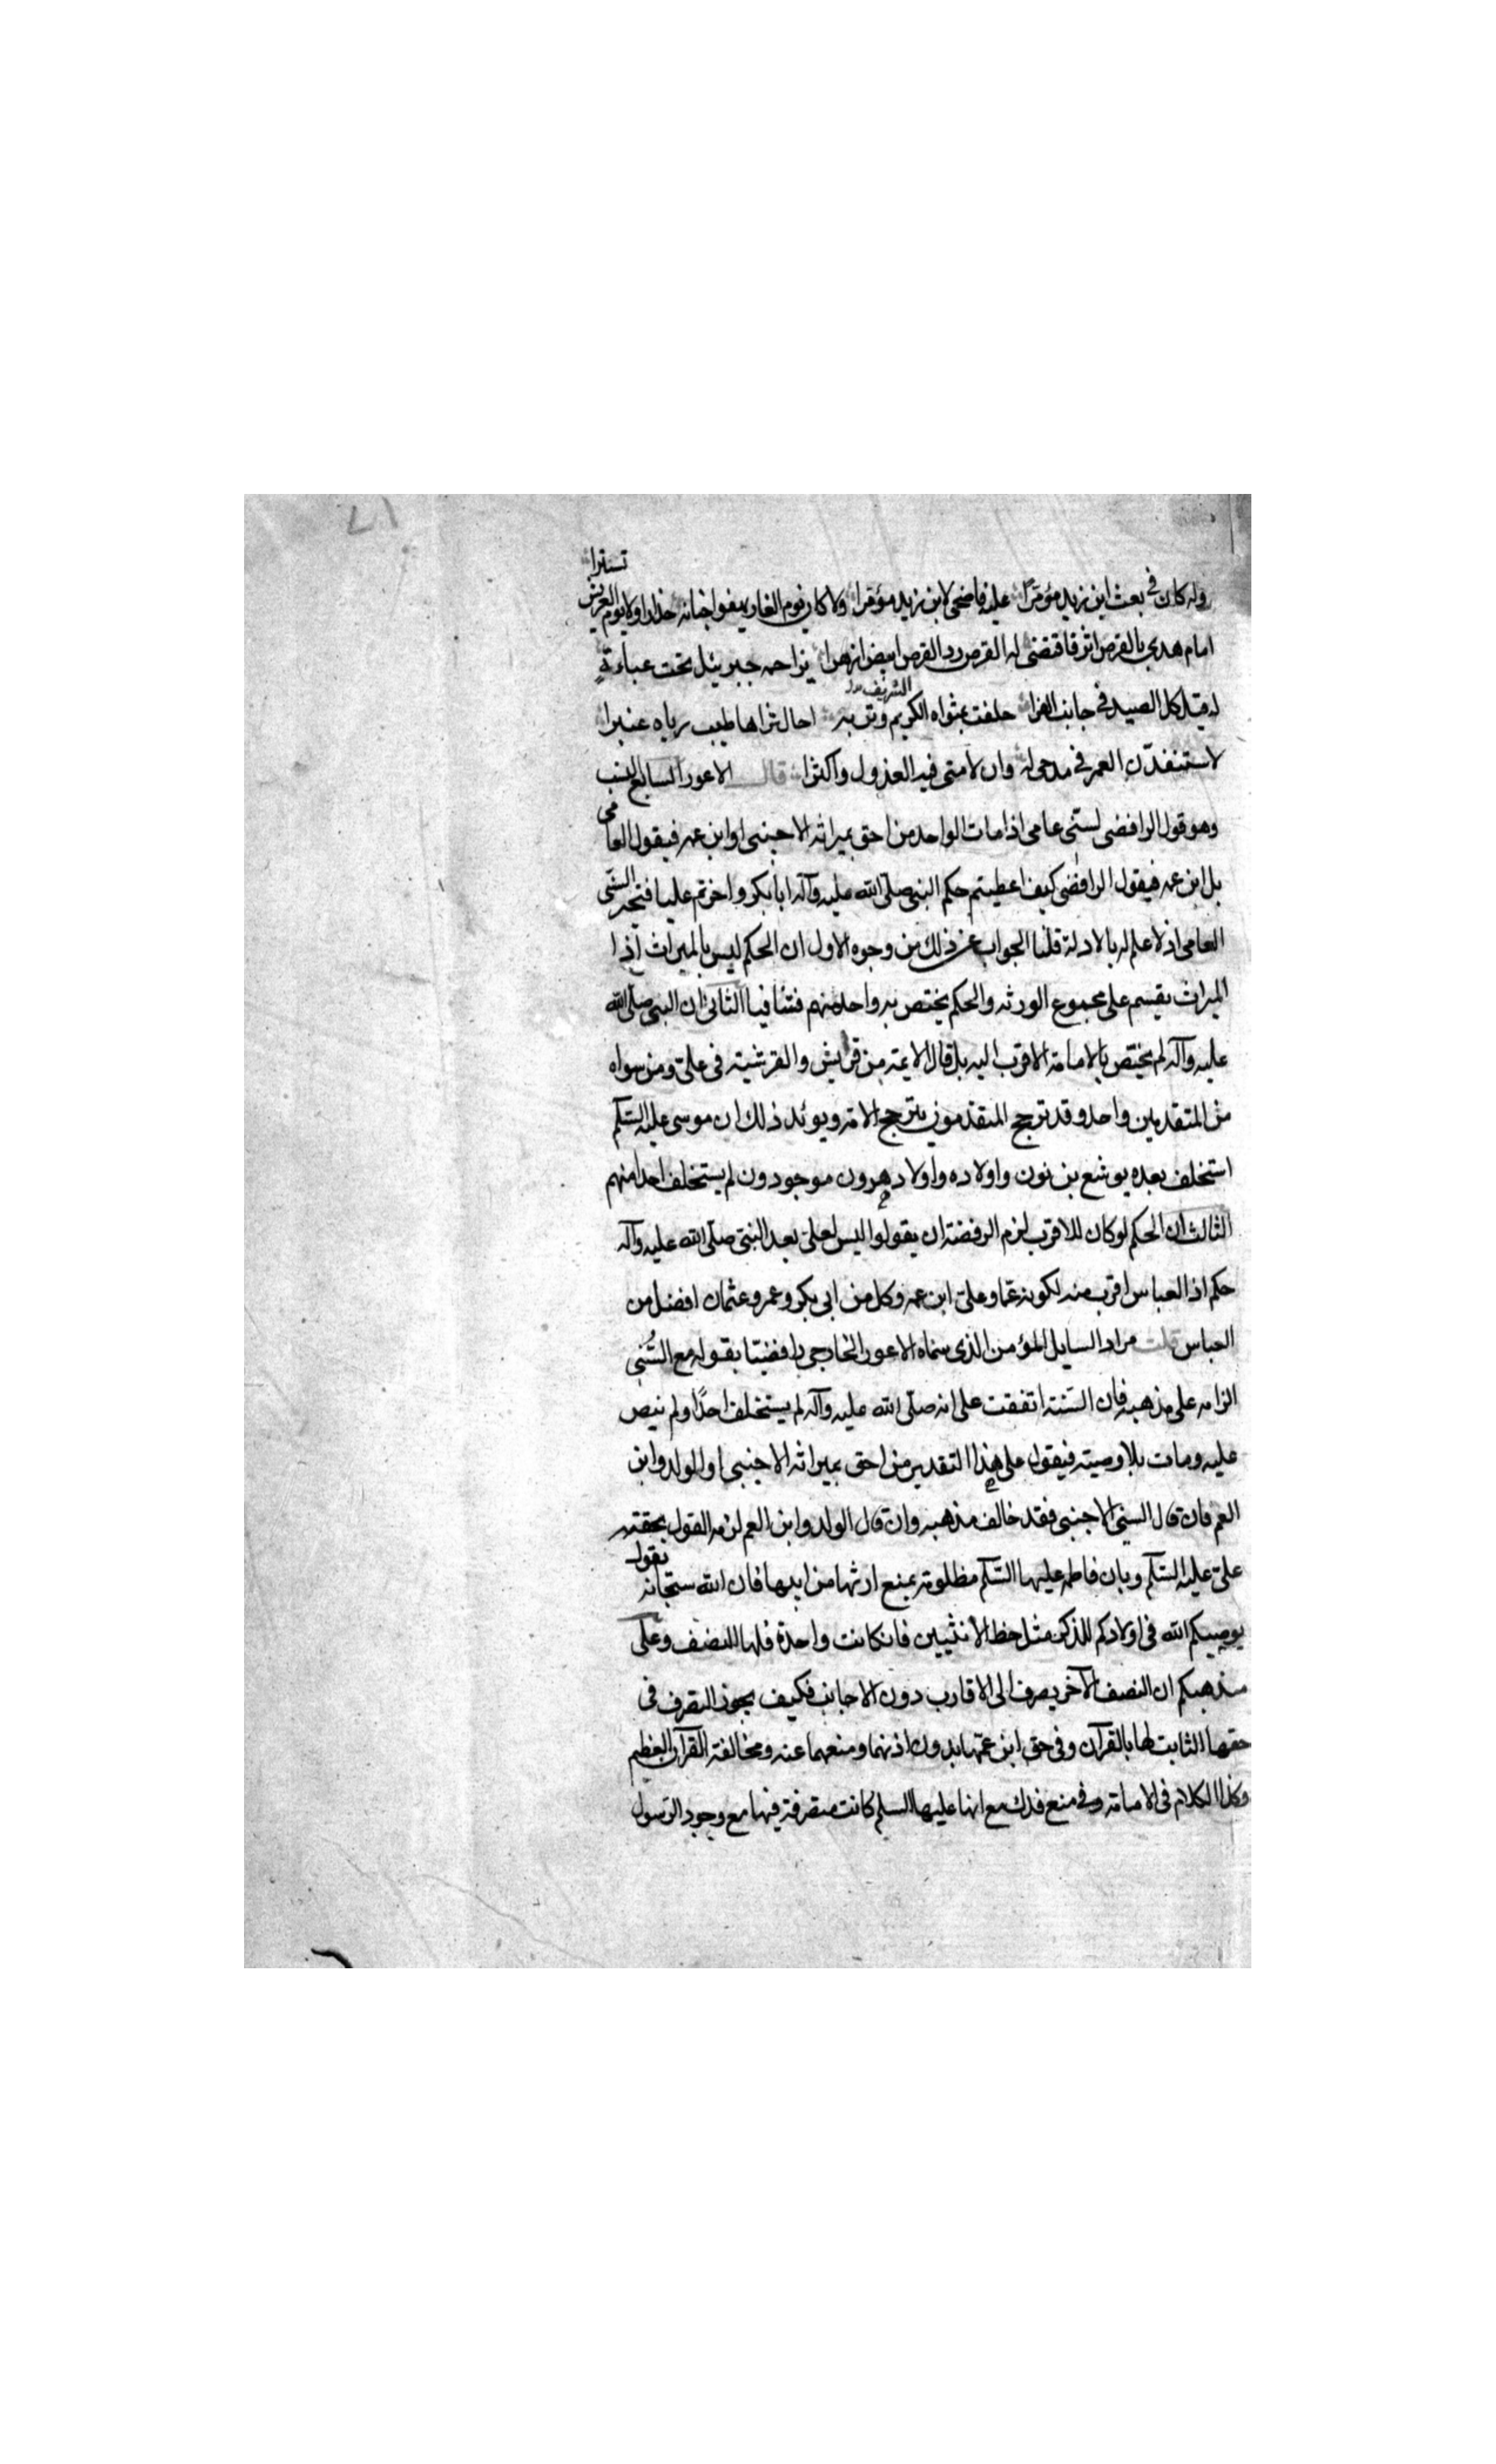 تسترا
ولا كان في بعث ابن زيد مؤمرا عليه فاضحى لابن زيد مؤمرا ولا كان يوم الغار يهفو جنانه حذارا ولا يوم العريش
امام هدى بالقرص اثر فاقتضى له القرص رد القرص ابيض ازهرا يزاحمه جبريئل تحت عباءة
له قيل كل الصيد في جانب الفرا حلفت بمثواه الكريم وتربه الشريف احال ثراها طيب رياه عنبرا
لاستنفدن العمر في مدحى له وان لامنى فيه العذول واكثرا قال الاعور السابع
وهو قول الرافضى لسنى عامى اذا مات الواحد من احق بميراثه الاجنبى او ابن عمه فيقول العامى
بل ابن عمه فيقول الرافضى كيف اعطيتم حكم النبى صلى الله عليه وآله ابا بكر واخرتم عليا فتحير السنى
العامى اذ لا علم له بالادلة قلنا الجواب عن ذلك من وجوه الاول ان الحكم ليس بالميراث اذا
الميراث يقسم على مجموع الورثه والحكم يختص به واحد منهم فتنافيا الثانى ان النبى صلى الله
عليه وآله لم يختص بالامامة الاقرب اليه بل قال الايمة من قريش والقرشية فى على ومن سواه
من المتقدمين واحد وقد ترجح المتقدمون بترجح الامة ويوئد ذلك ان موسى عليه السلم
استخلف بعده يوشع بن نون واولاده واولاد هرون موجودون لم يستخلف احدا منهم
الثالث ان الحكم لو كان للاقرب لزم الرفضة ان يقولوا ليس لعلى بعد النبى صلى الله عليه وآله
حكم اذ العباس اقرب منه لكونه عما وعلى ابن عمه وكل من ابى بكر وعمر وعثمان افضل من
العباس قلت مراد السايل المؤمن الذى سماه الاعور الخارجى رافضيا بقوله مع السنى
الزامه على مذهبه فان السنة اتفقت على انه صلى الله عليه وآله لم يستخلف احدا ولم ينص
عليه ومات بلا وصية فيقول على هذا التقدير من احق بميراثه الاجنبى او الولد وابن
العم فان قال السنى الاجنبى فقد خالف مذهبه وان قال الولد وابن العم لزمه القول بحقية
على عليه السلم وبان فاطمه عليها السلم مظلومة بمنع ارثها من ابيها فان الله سبحانه يقول
يوصيكم الله فى اولادكم للذكر مثل حظ الانثيين فان كانت واحدة فلها النصف وعلى
مذهبكم ان النصف الآخر يصرف الى الاقارب دون الاجانب فكيف يجوز التصرف فى
حقها الثابت لها بالقرآن وفى حق ابن عمها بدون اذنهما ومنعهما عنه ومخالفة القرآن العظيم
وكذا الكلام فى الامامة وفى منع فدك مع انها عليها السلم كانت متصرفة فيها مع وجود الرسول